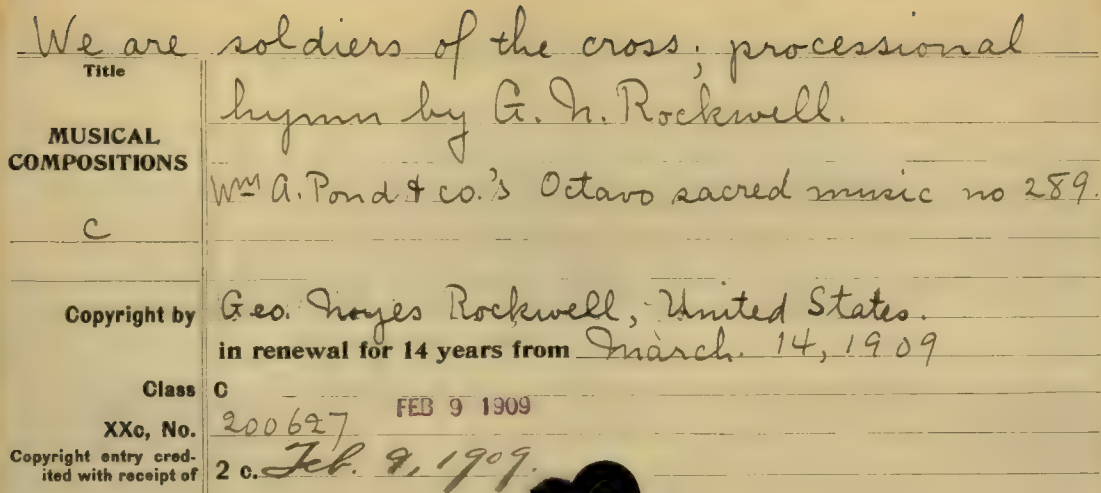 We are soldiers of the cross; processional
Title
hymn by G. N. Rockwell.
MUSICAL
COMPOSITIONS
Wm A. Pond & co.'s Octavo sacred music no 289.
C
Copyright by Geo. Noyes Rockwell, United States.
in renewal for 14 years from March. 14, 1909
Class C
FEB 9 1909
XXc, No. 200627
Copyright entry cred-
ited with receipt of 2 c. Feb. 9, 1909.